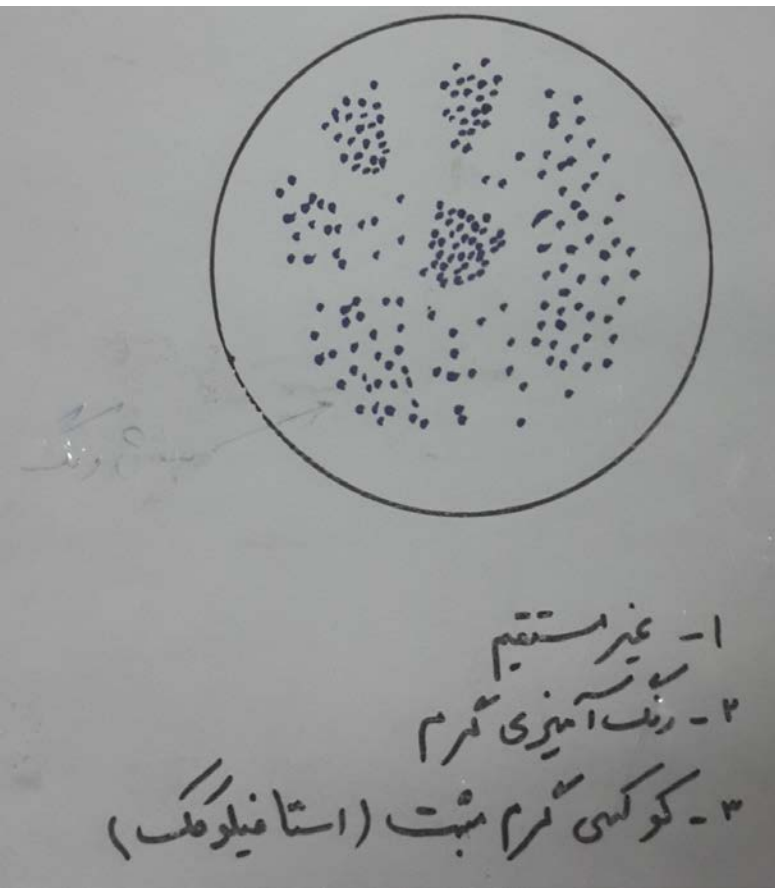 ۱- غیر مستقیم
۲- رنگ آمیزی گرم
۳- کوکسی گرم مثبت (استافیلوکک)